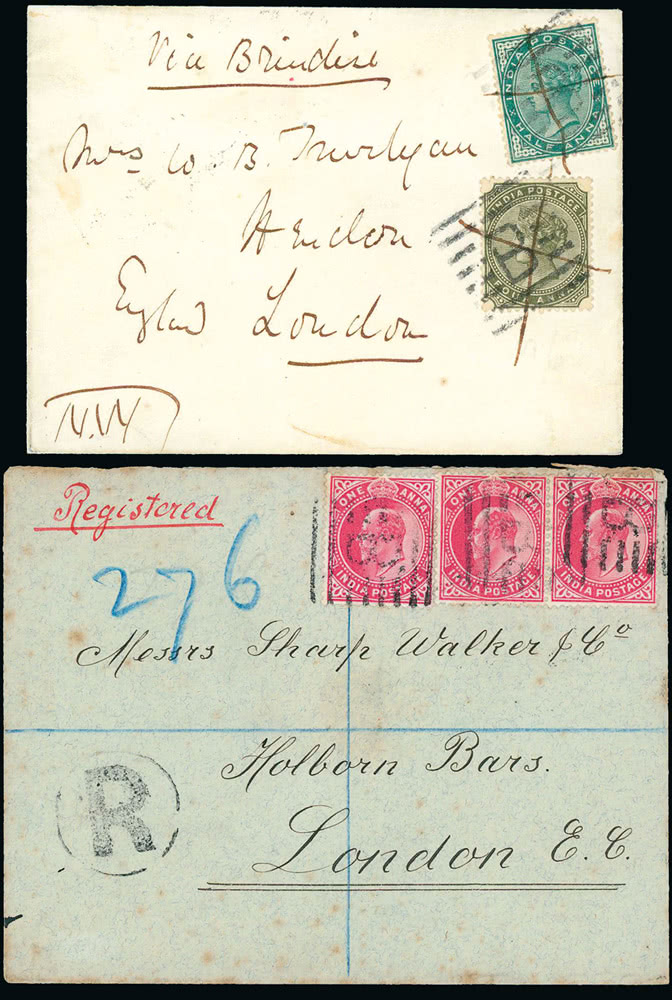 Via Brindisi
INDIA POSTAGE
HALF ANNA
Mrs W. B.
INDIA POSTAGE
FOUR ANNAS
Hendon
England London
Registered
276
ONE ANNA
INDIA POSTAGE
ONE ANNA
INDIA POSTAGE
ONE ANNA
INDIA POSTAGE
Messrs Sharp Walker & Co
R
Holborn Bars.
London E.C.